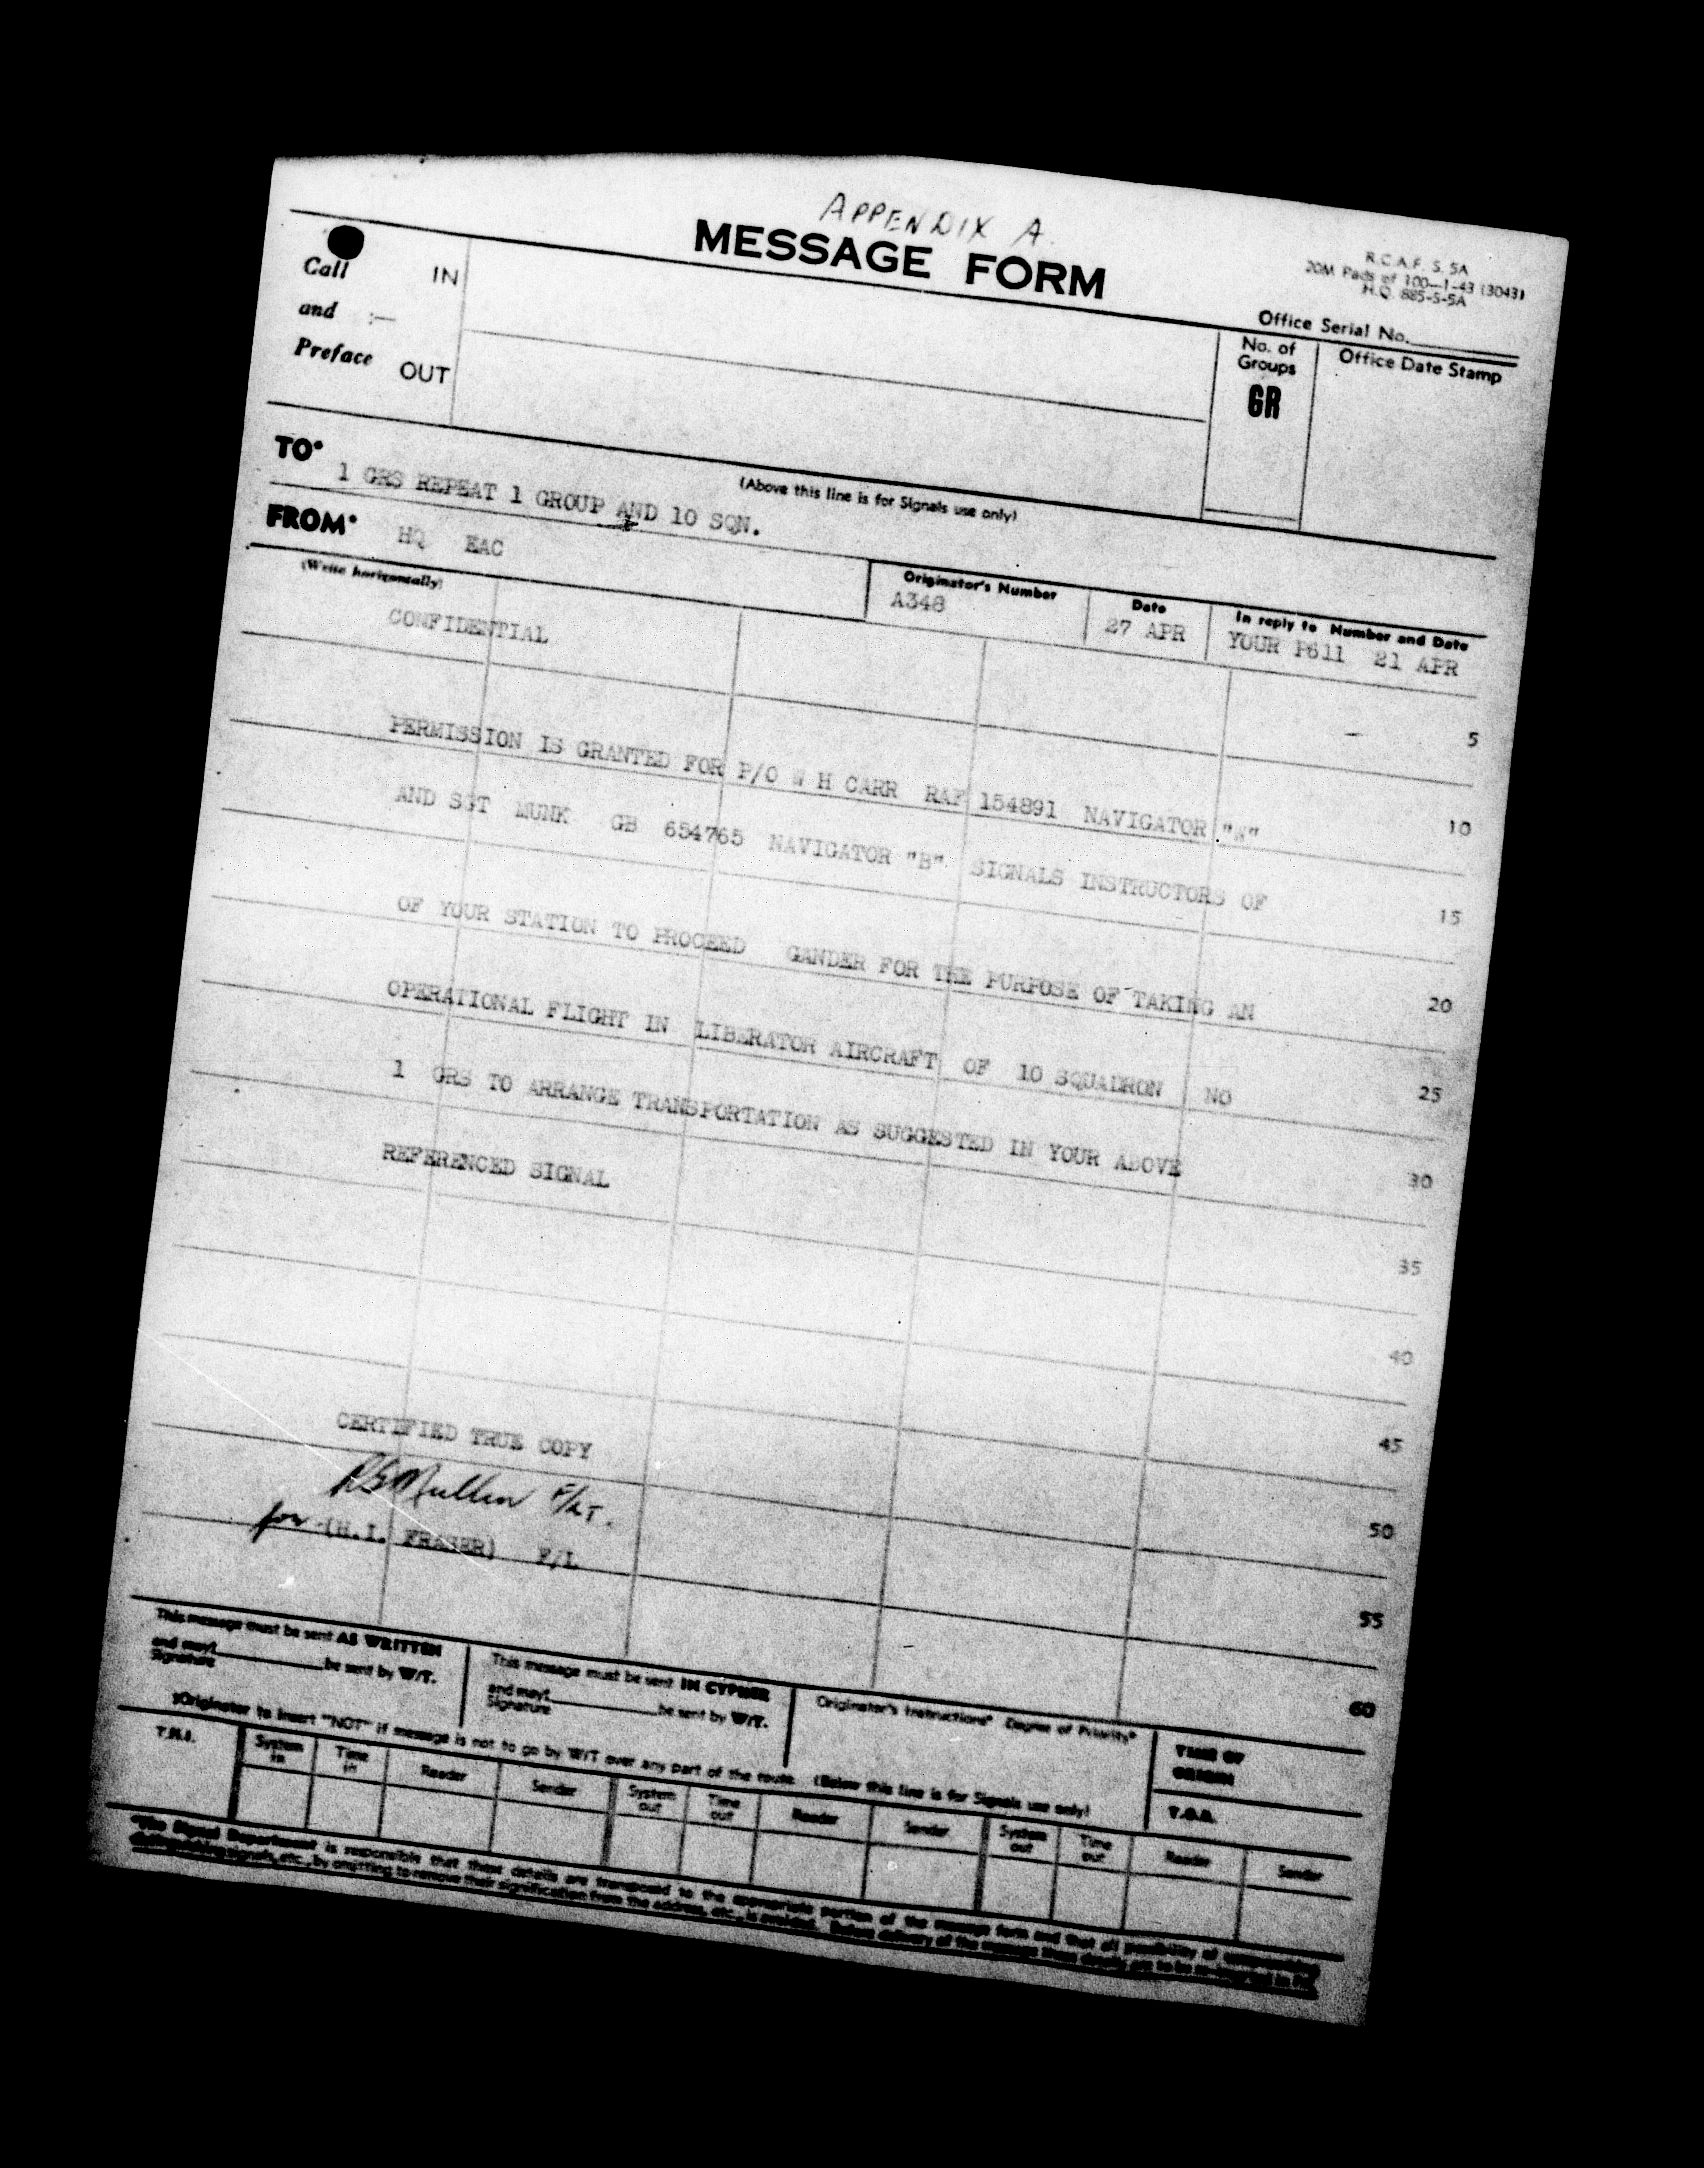 APPENDIX A.
MESSAGE FORM
R.C.A.F. S. 5A
20M Pads of 100—1-43 (3043)
H.Q. 885-S-5A
Office Serial No.
Call IN
and :—
Preface OUT
No. of Groups
GR
Office Date Stamp
(Above this line is for Signals use only)
TO* 1 GRS REPEAT 1 GROUP AND 10 SQN.
FROM* HQ EAC
(Write horizontally)
Originator's Number
A348
Date
27 APR
In reply to Number and Date
YOUR P611 21 APR
CONFIDENTIAL
5
PERMISSION IS GRANTED FOR P/O W H CARR RAF 154891 NAVIGATOR "W"
10
AND SGT MUNK GB 654765 NAVIGATOR "B" SIGNALS INSTRUCTORS OF
15
OF YOUR STATION TO PROCEED GANDER FOR THE PURPOSE OF TAKING AN
20
OPERATIONAL FLIGHT IN LIBERATOR AIRCRAFT OF 10 SQUADRON NO
25
1 GRS TO ARRANGE TRANSPORTATION AS SUGGESTED IN YOUR ABOVE
30
REFERENCED SIGNAL
35
40
45
CERTIFIED TRUE COPY
RSMullen F/LT.
50
for (H.I. FRASER) F/L
55
60
This message must be sent AS WRITTEN
and may† be sent by W/T.
Signature
This message must be sent IN CYPHER
and may† be sent by W/T.
Signature
Originator's Instructions* Degree of Priority*
TIME OF ORIGIN
†Originator to insert "NOT" if message is not to go by W/T over any part of the route. (Below this line is for Signals use only)
T.H.I.
System in
Time in
Reader
Sender
System out
Time out
Reader
Sender
System out
Time out
Reader
Sender
T.O.R.
*The Signal Department is responsible that these details are transposed to the appropriate portion of the message form and that all possibility of
distinguishing signals, etc., by omitting to remove their signification from the address, etc., is avoided. Before delivery of the message these details are to be